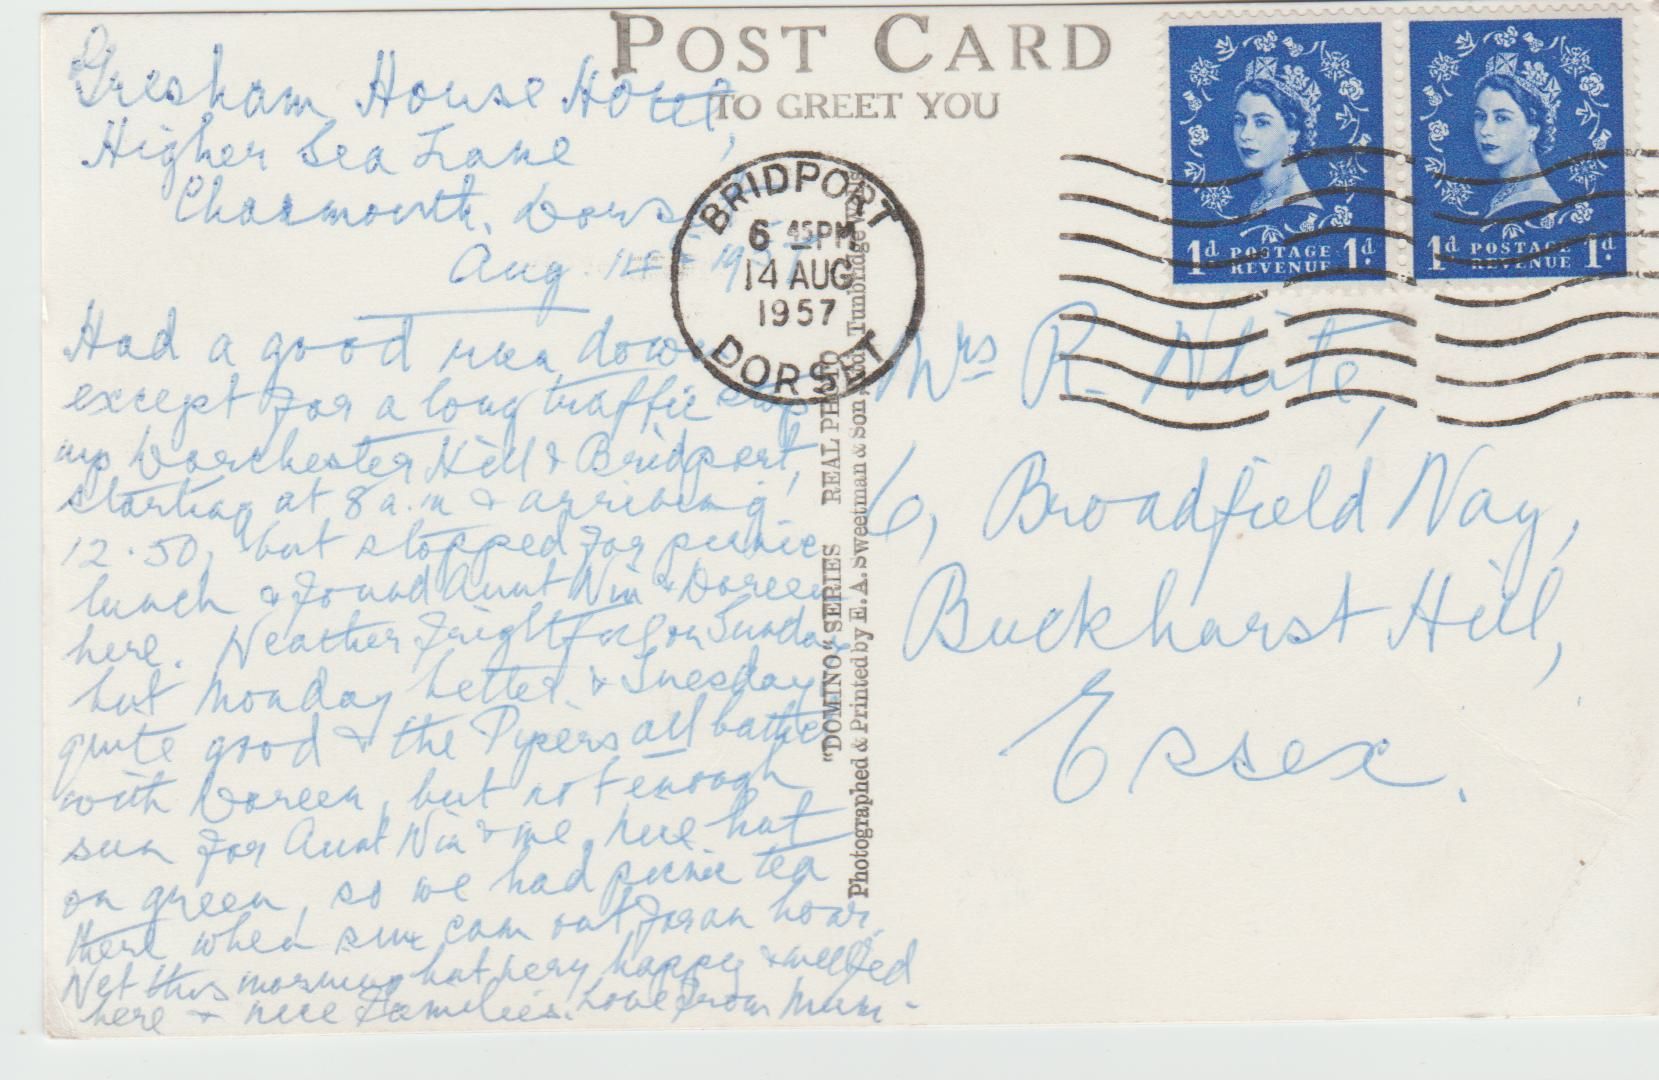 POST CARD
TO GREET YOU
Gresham House Hotel,
Higher Sea Lane
Charmouth, Dorset
Aug. 14th 1957
Had a good run down
except for a long traffic stop
up Dorchester Hill & Bridport,
starting at 8 a.m & arriving
12.50, but stopped for picnic
lunch & found Aunt Nin & Doreen
here. Weather frightful on Sunday
but Monday better & Tuesday
quite good & the Pipers all bathed
with Doreen, but not enough
sun for Aunt Nin & me. Nice hut
on green, so we had picnic tea
there when sun cam out for an hour.
Wet this morning but very happy & well fed
here & nice families. Love from Mum -
BRIDPORT
6 45PM
14 AUG
1957
DORSET
"DOMINO" SERIES REAL PHOTO
Photographed & Printed by E. A. Sweetman & Son, Tunbridge
1d POSTAGE REVENUE 1d
1d POSTAGE REVENUE 1d
Mrs R. White,
6, Broadfield Way,
Buckhurst Hill,
Essex.